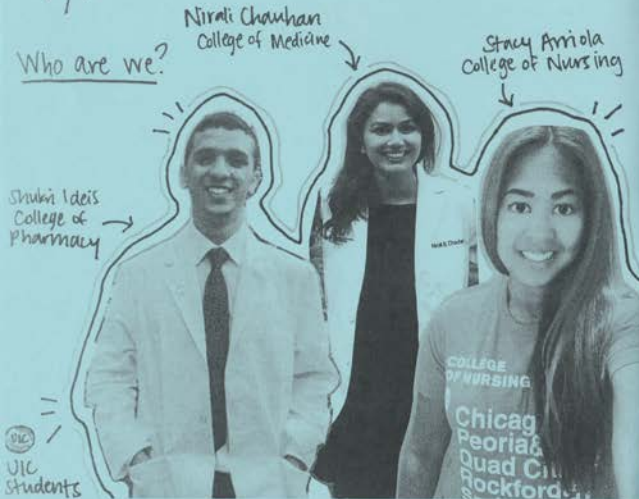 Who are we?
Nirali Chauhan
College of Medicine
Stacy Arriola
College of Nursing
Shukri Ideis
College of
Pharmacy
COLLEGE
OF NURSING
Chicag
Peoria&
Quad Cit
Rockford
UIC
UIC
Students